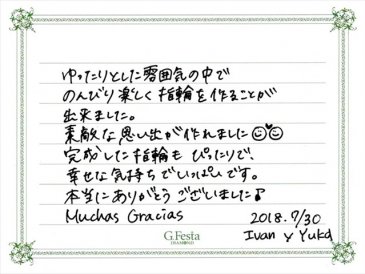 ゆったりとした雰囲気の中で
のんびり楽しく指輪を作ることが
出来ました。
素敵な思い出が作れました
完成した指輪も ぴったりで、
幸せな気持ちでいっぱいです。
本当にありがとうございました♪
Muchas Gracias
2018.9/30
Ivan y Yuka
G.Festa
DIAMOND